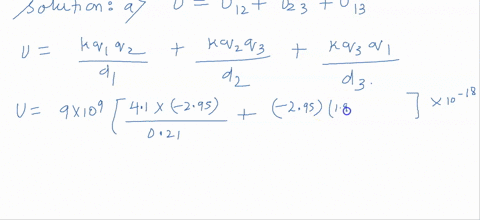 Solution: a) U = U12 + U23 + U13
U = kq1q2/d1 + kq2q3/d2 + kq3q1/d3.
U = 9×10^9 [ 4.1 × (-2.95)/0.21 + (-2.95)(1.8 ] × 10^-18